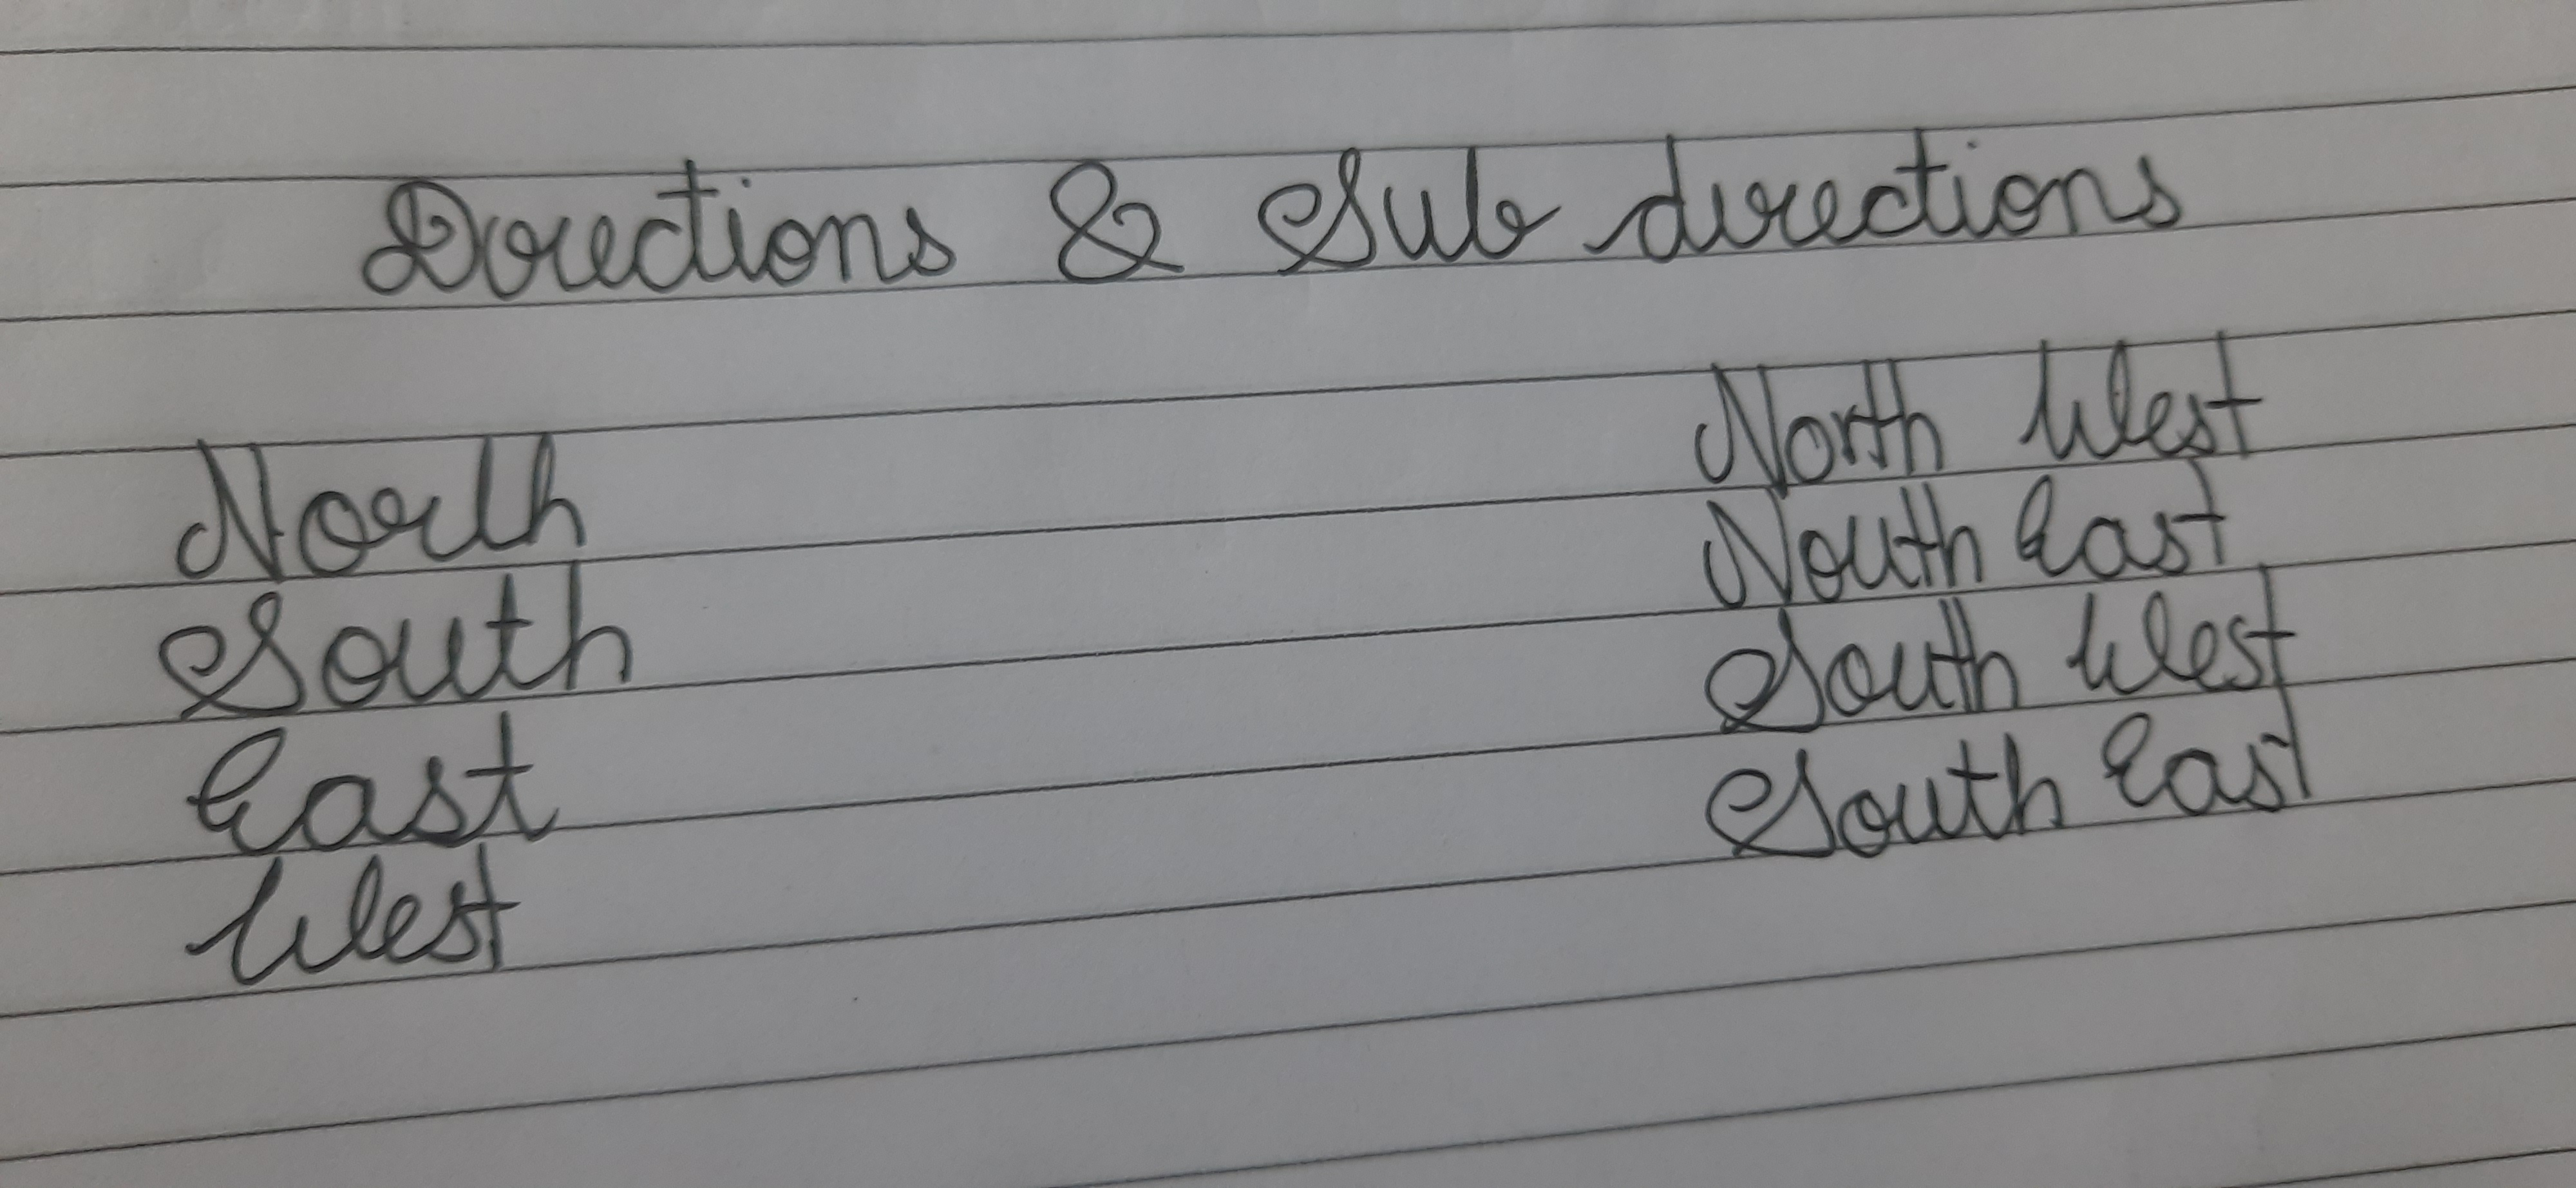 Directions & Sub directions
North
South
East
West
North West
Nouth East
South West
South East